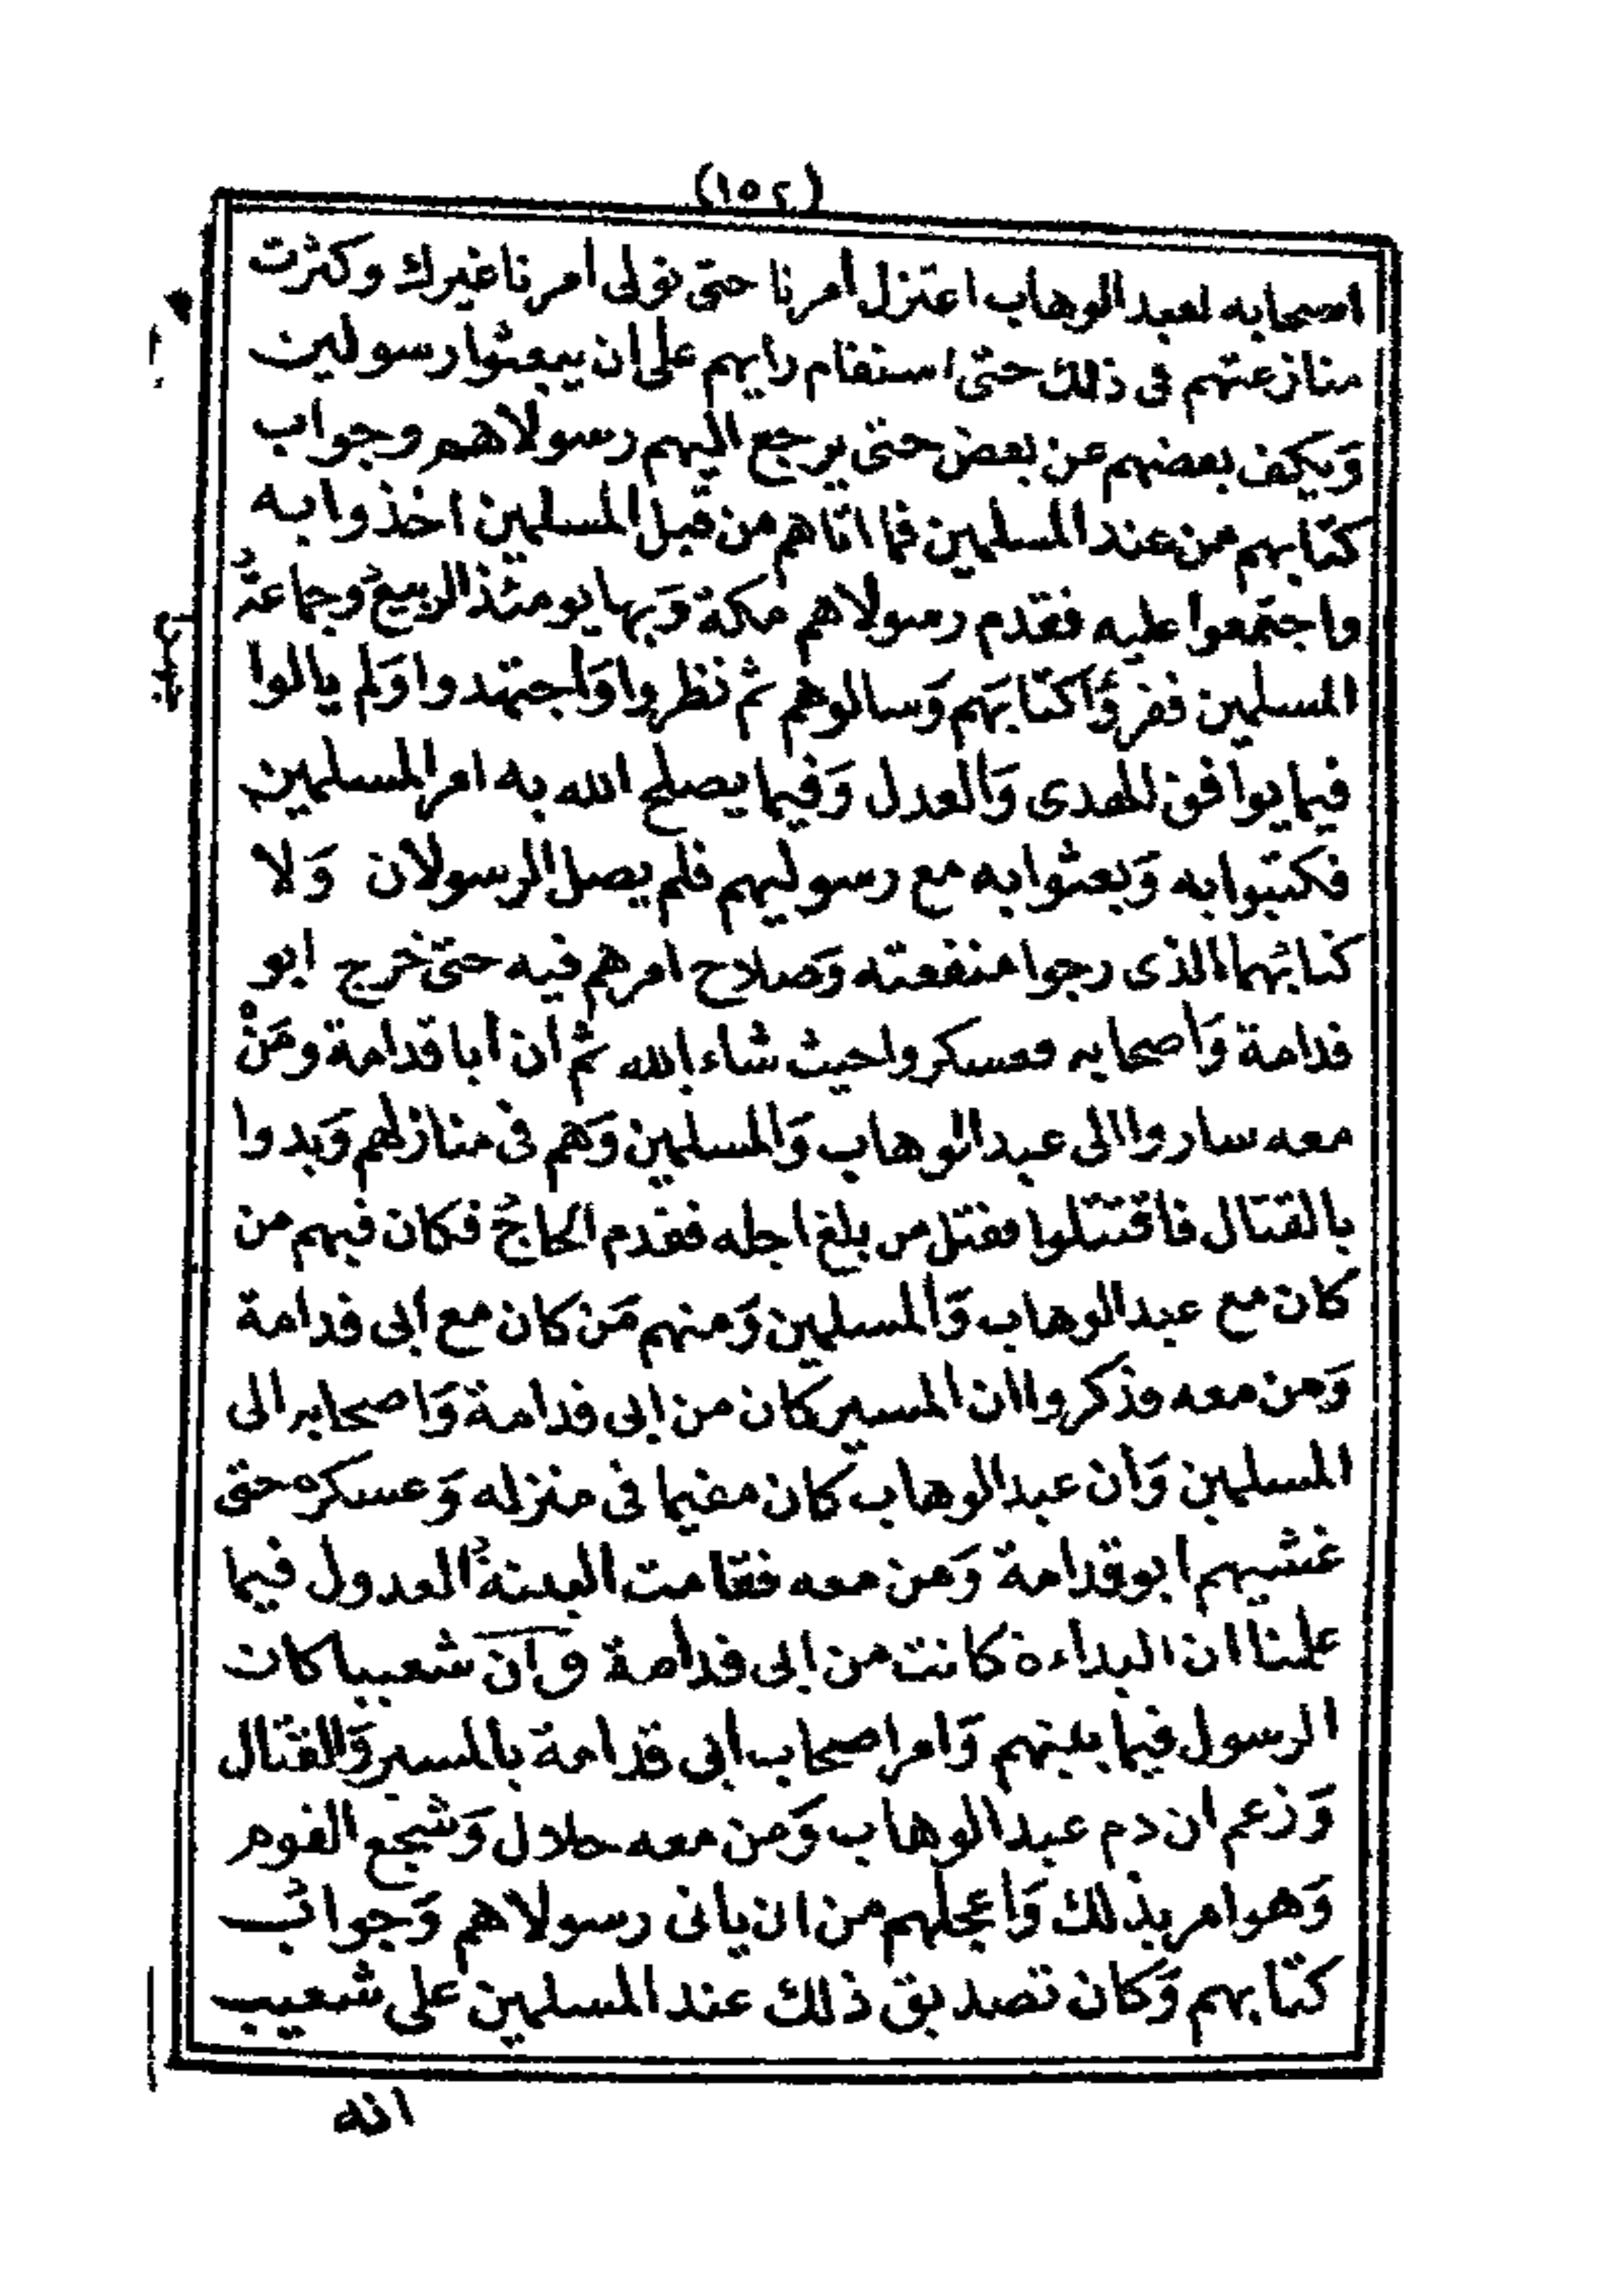 (١٥٢)
اصحابه لعبد الوهاب اعتزل امرنا حتى نولى امرنا غيرك وكثرت
منازعتهم فى ذلك حتى استقام رايهم على ان يبعثوا رسولين
وَيكف بعضهم عن بعض حتى يرجع اليهم رسولاهم وجواب
كتابهم من عند المسلمين فما اتاهم من قبل المسلمين اخذوا به
واجتمعوا عليه فقدم رسولاهم مكة وَبها يومئذ الربيعُ وجماعةُ
المسلمين فقرؤا كتابَهم وَسالوهم ثم نظروا وَاجتهدوا وَلم يالوا
فيما يوافق للهدى وَالعدل وَفيما يصلح الله به امر المسلمين
فكتبوا به وَبعثوا به مع رسوليهم فلم يصل الرسولان وَلا
كتابهما الذى رجوا منفعته وَصلاح امرهم فيه حتى خرج ابو
قدامة وَاصحابه فعسكروا حيث شاء الله ثم ان ابا قدامة ومَنْ
معه ساروا الى عبد الوهاب وَالمسلمين وَهم فى منازلهم وَبدوا
بالقتال فاقتتلوا فقتل من بلغ اجله فقدم الحاجُ فكان فيهم من
كان مع عبد الوهاب وَالمسلمين وَمنهم مَن كان مع ابى قدامة
وَمن معه فذكروا ان المسير كان من ابى قدامة وَاصحابه الى
المسلمين وَان عبد الوهاب كان مقيما فى منزله وَعسكره حتى
غشيهم ابو قدامة وَمن معه فقامت البينةُ العدول فيما
علمنا ان البداءة كانت من ابى قدامة وان شعيبا كان
الرسول فيما بينهم وَامر اصحاب ابى قدامة بالمسير وَالقتال
وَزعم ان دم عبد الوهاب وَمن معه حلال وَشجع القوم
وَهو امر بذلك وَاعجلهم من ان ياتى رسولاهم وَجوابُ
كتابهم وَكان تصديق ذلك عند المسلمين على شعيب
انه